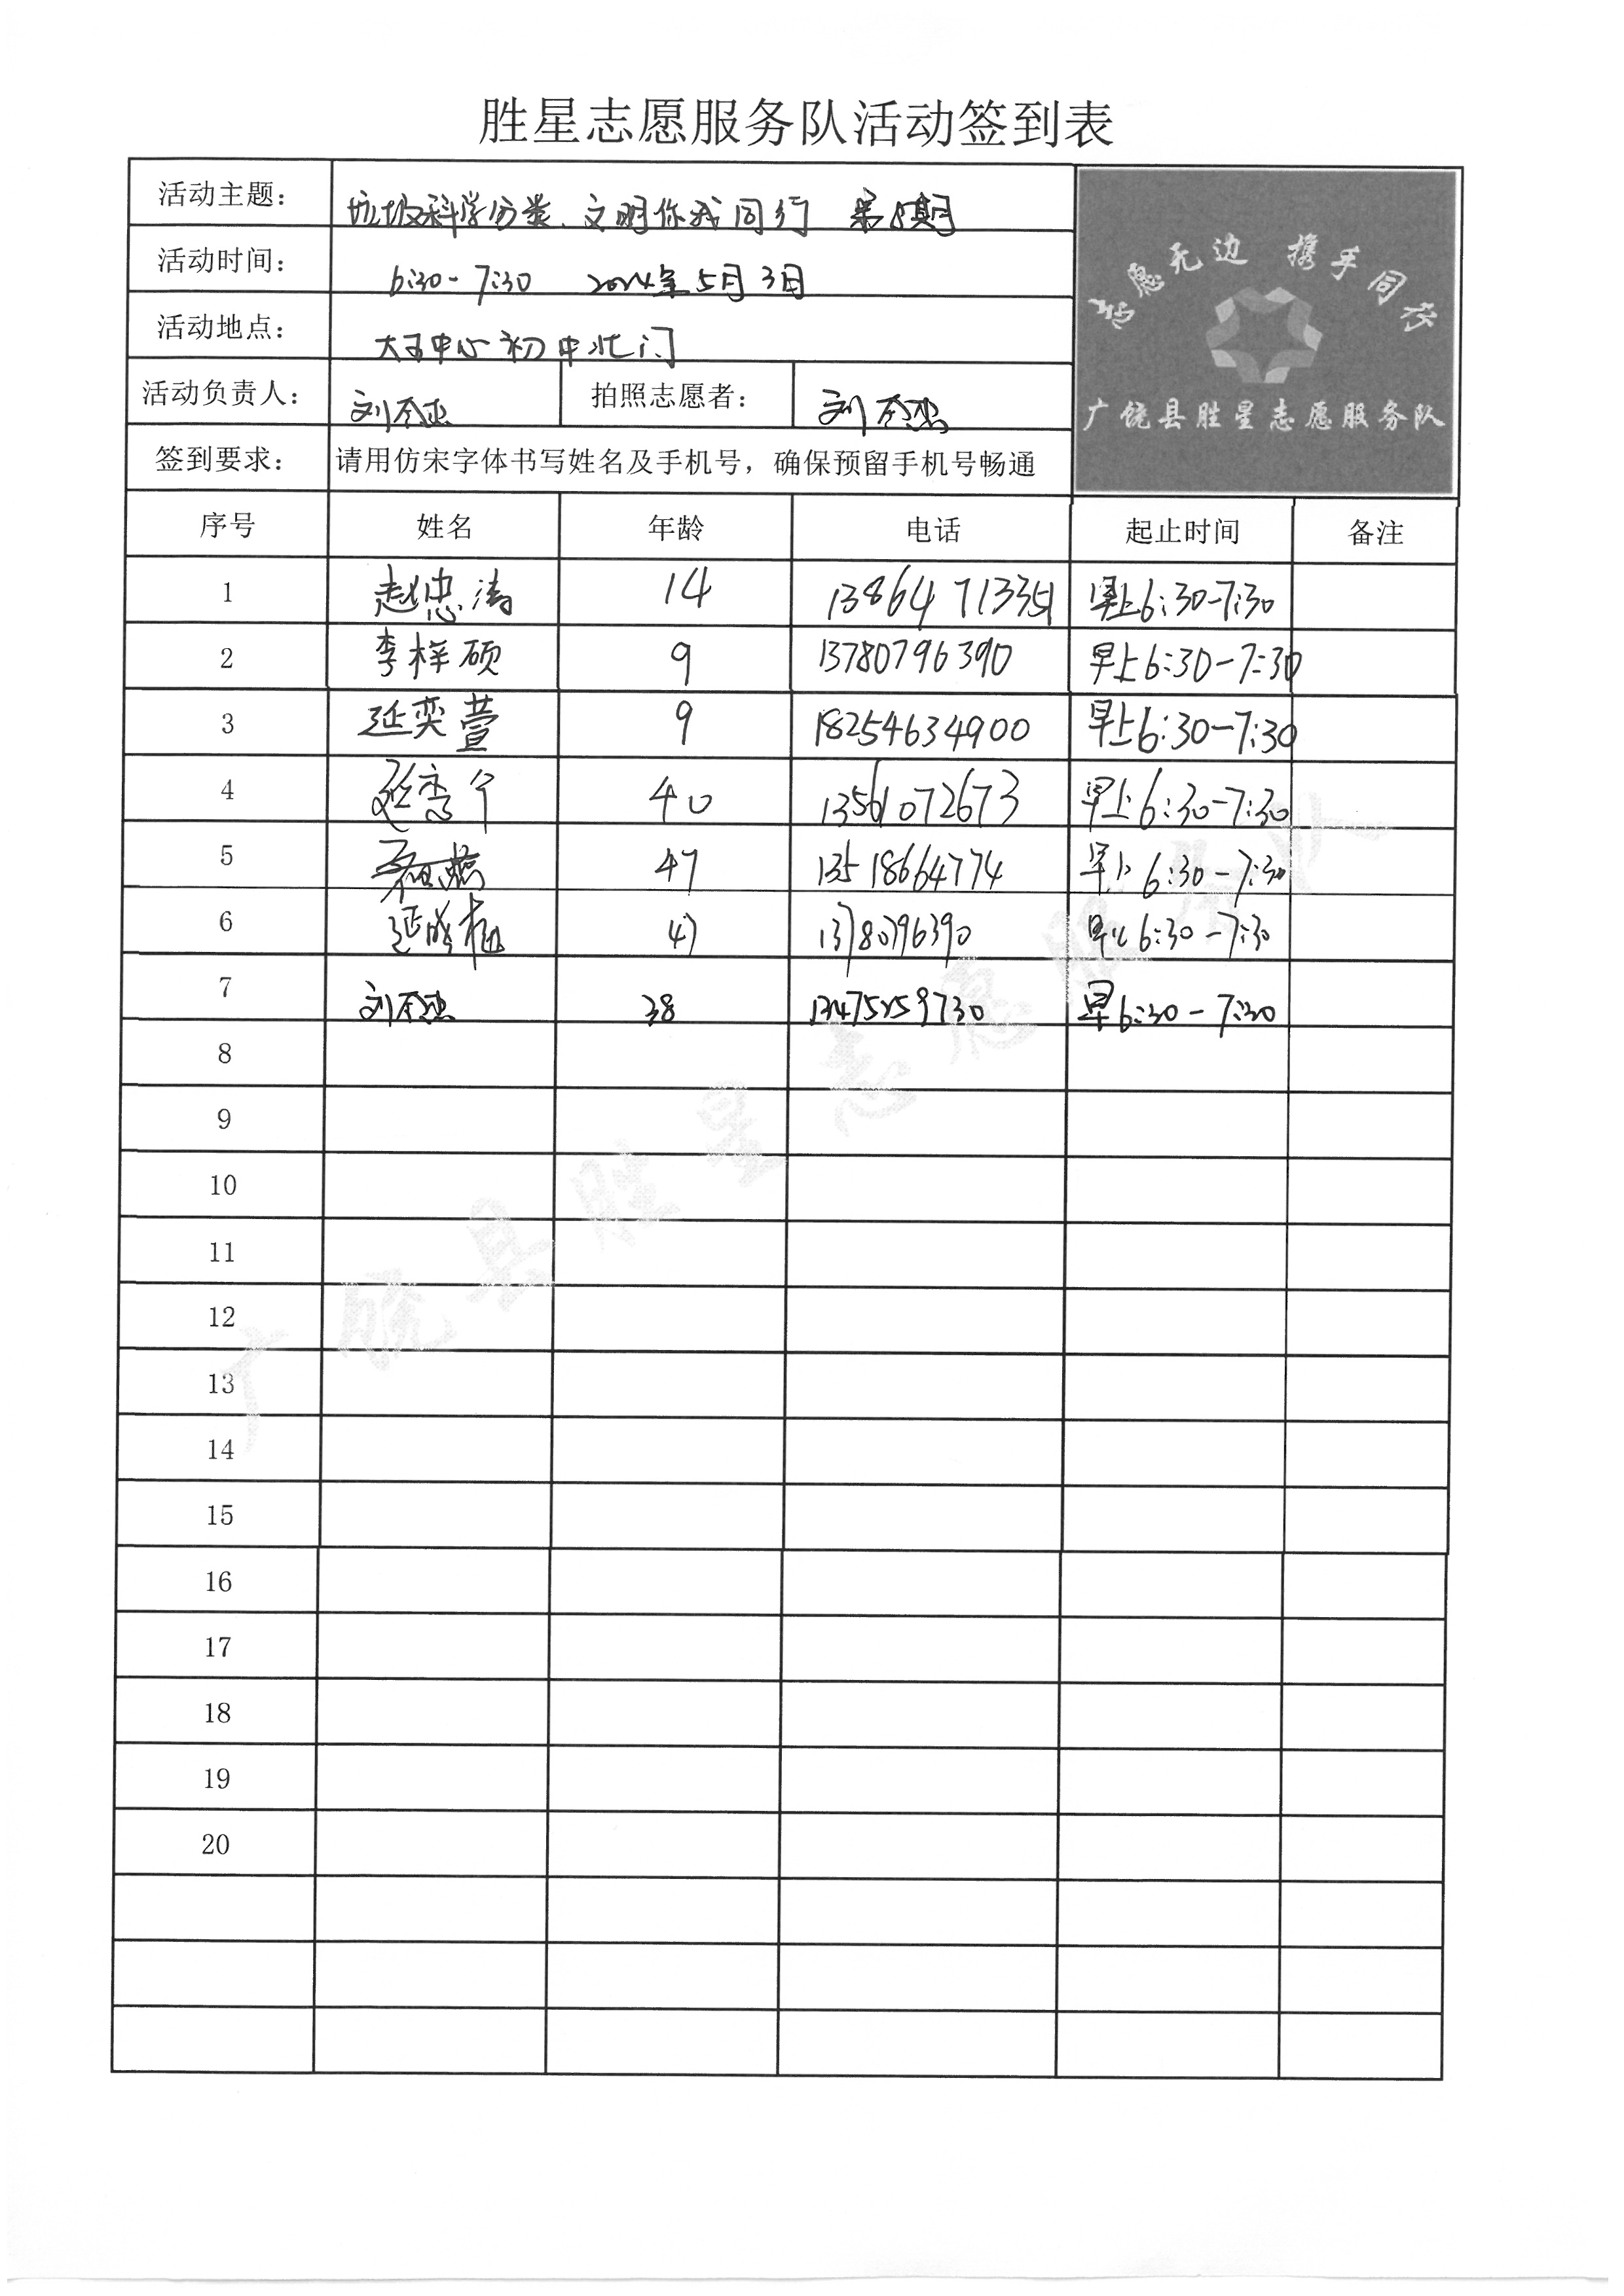 胜星志愿服务队活动签到表
活动主题： 垃圾科学分类、文明你我同行 第8期
活动时间： 6:30-7:30 2024年5月3日
活动地点： 大王中心初中北门
志愿无边 携手同行
广饶县胜星志愿服务队
活动负责人： 刘杰 拍照志愿者： 刘杰
签到要求： 请用仿宋字体书写姓名及手机号，确保预留手机号畅通
序号 姓名 年龄 电话 起止时间 备注
1 赵忠涛 14 13864713351 早上6:30-7:30
2 李梓硕 9 13780796390 早上6:30-7:30
3 延奕萱 9 18254634900 早上6:30-7:30
4 40 13561072673 早上6:30-7:30
5 47 13518664774 早上6:30-7:30
6 47 13780796390 早上6:30-7:30
7 38 早6:30-7:30
8
9
10
11
12
13
14
15
16
17
18
19
20
广饶县胜星志愿服务队